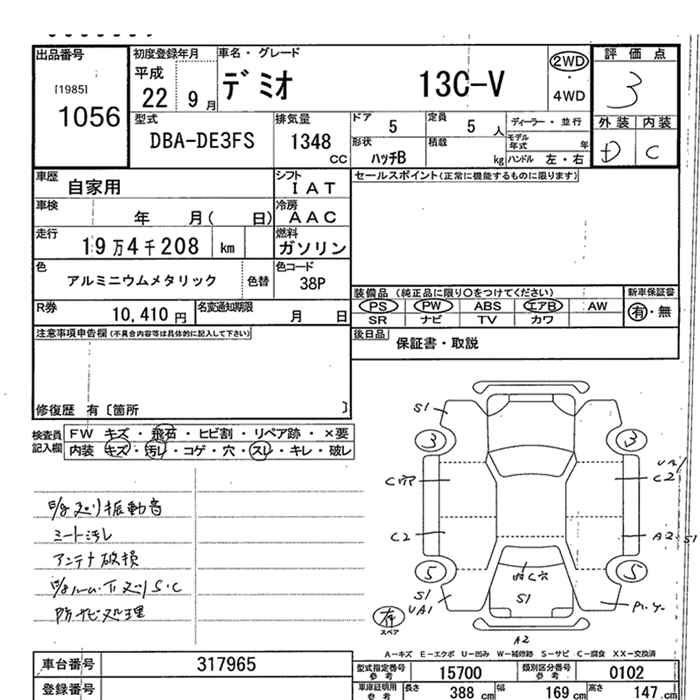 出品番号
[1985]
1056
初度登録年月
平成
22 9月
車名・グレード
デミオ 13C-V
2WD
・
4WD
評価点
3
外装 内装
D C
型式
DBA-DE3FS
排気量
1348
CC
ドア 5
定員 5 人
ディーラー・並行
形状 ハッチB
積載 kg
モデル年式 年
ハンドル 左・右
車歴 自家用
シフト IAT
セールスポイント(正常に機能するものに限ります)
車検 年 月( 日)
冷房 AAC
走行 19万4千208 km
燃料 ガソリン
色 アルミニウムメタリック 色替
色コード 38P
装備品(純正品に限り○をつけてください)
新車保証書
PS PW ABS エアB AW
有・無
SR ナビ TV カワ
R券 10,410 円
名変通知期限 月 日
後日品 保証書・取説
注意事項申告欄(不具合内容等は具体的に記入して下さい)
修復歴 有〔箇所 〕
検査員記入欄
FW キズ・飛石・ヒビ割・リペア跡・×要
内装 キズ・汚レ・コゲ・穴・スレ・キレ・破レ
振動音
シート汚レ
アンテナ破損
防サビ処理
S1
3
3
C2
C2
A2 S1
5
5
C穴
S1
S1
UA1
有
スペア
A2
A-キズ E-エクボ U-凹み W-補修跡 S-サビ C-腐食 XX-交換済
車台番号 317965
登録番号
型式指定番号 参考 15700
類別区分番号 参考 0102
車庫証明用 参考 長さ 388 cm 幅 169 cm 高さ 147 cm